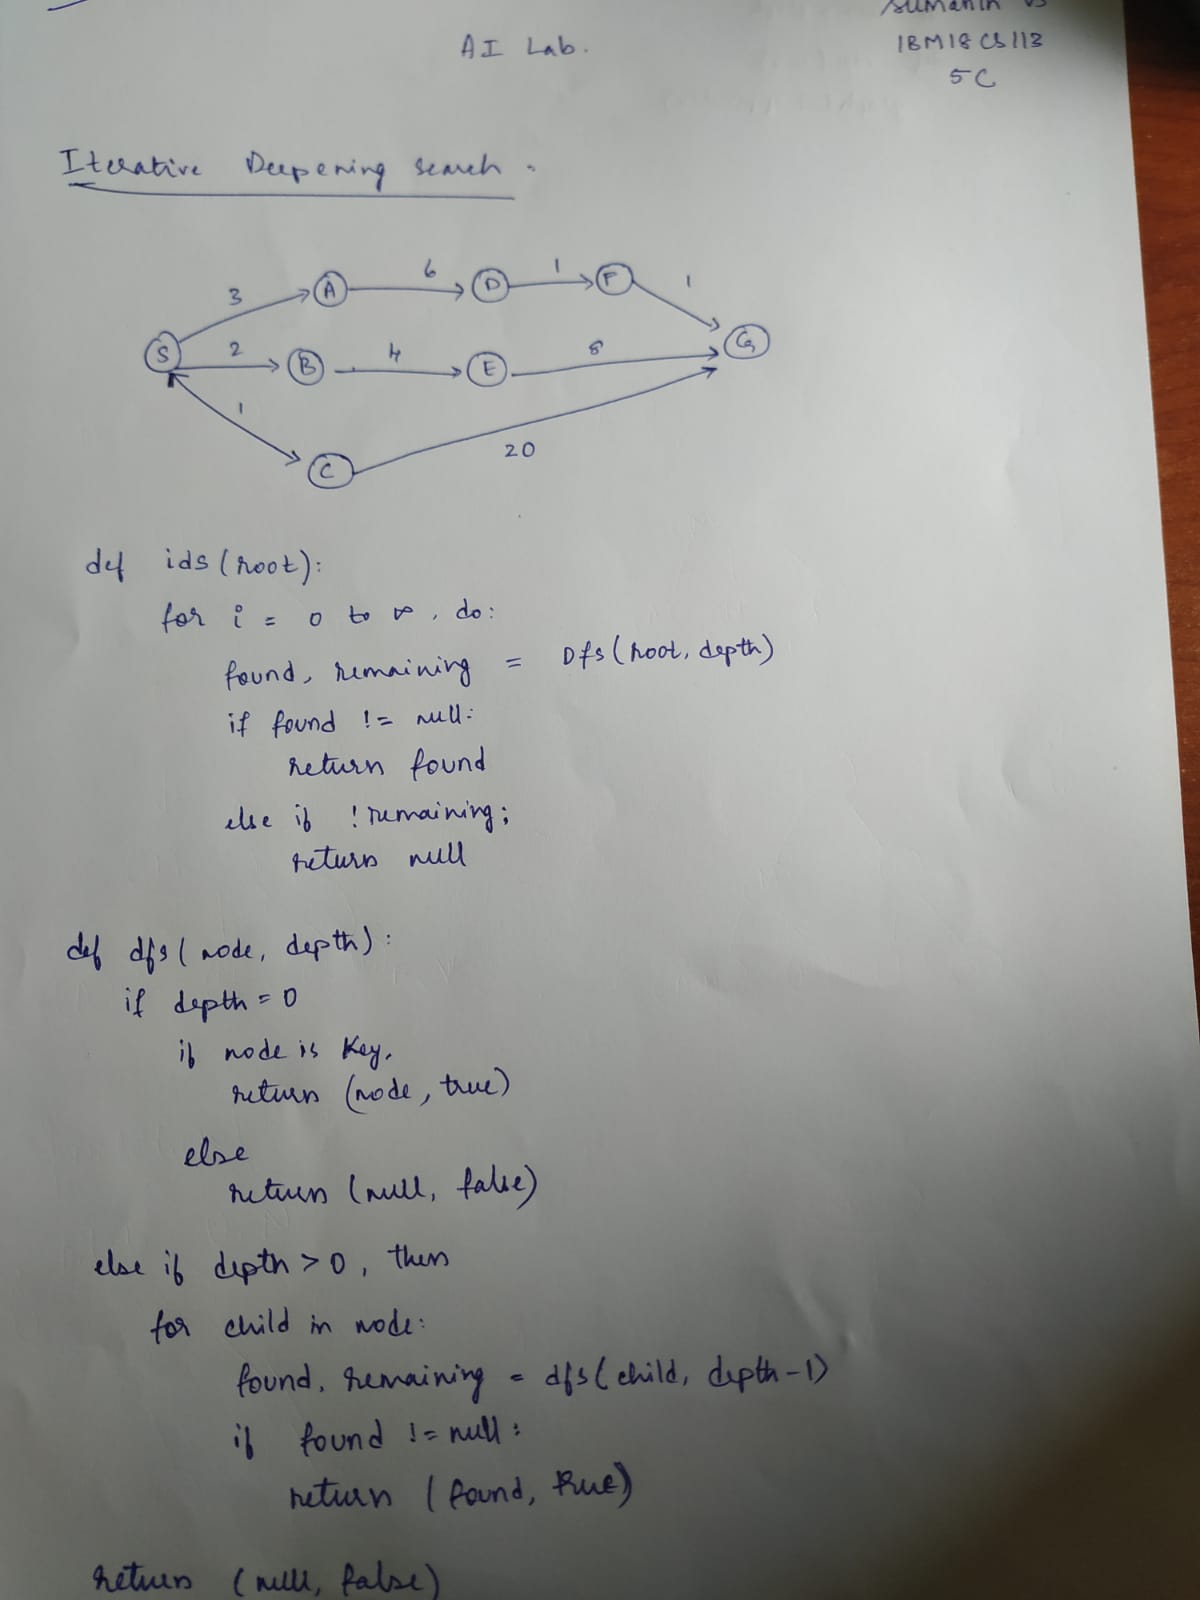 AI Lab.
1BM18CS113
5C
Iterative Deepening search.
3 A 6 D 1 F 1
S 2 B 4 E 8 G
1 C 20
def ids (root):
for i = 0 to ∞, do:
found, remaining = Dfs (root, depth)
if found != null:
return found
else if !remaining;
return null
def dfs (node, depth):
if depth = 0
if node is Key,
return (node, true)
else
return (null, false)
else if depth > 0, then
for child in node:
found, remaining = dfs (child, depth-1)
if found != null:
return (found, true)
return (null, false)